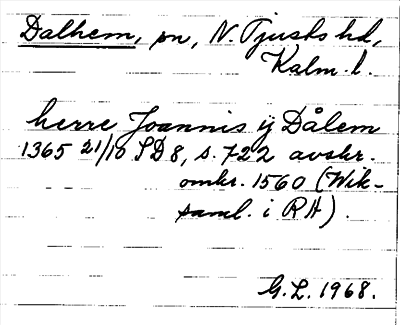 Dalhem, sn, N. Tjusts hd,
Kalm. l.
herre Joannis ij Dålem
1365 21/10 SD 8, s. 722 avskr.
omkr. 1560 (Wik-
saml. i RA).
G.L. 1968.